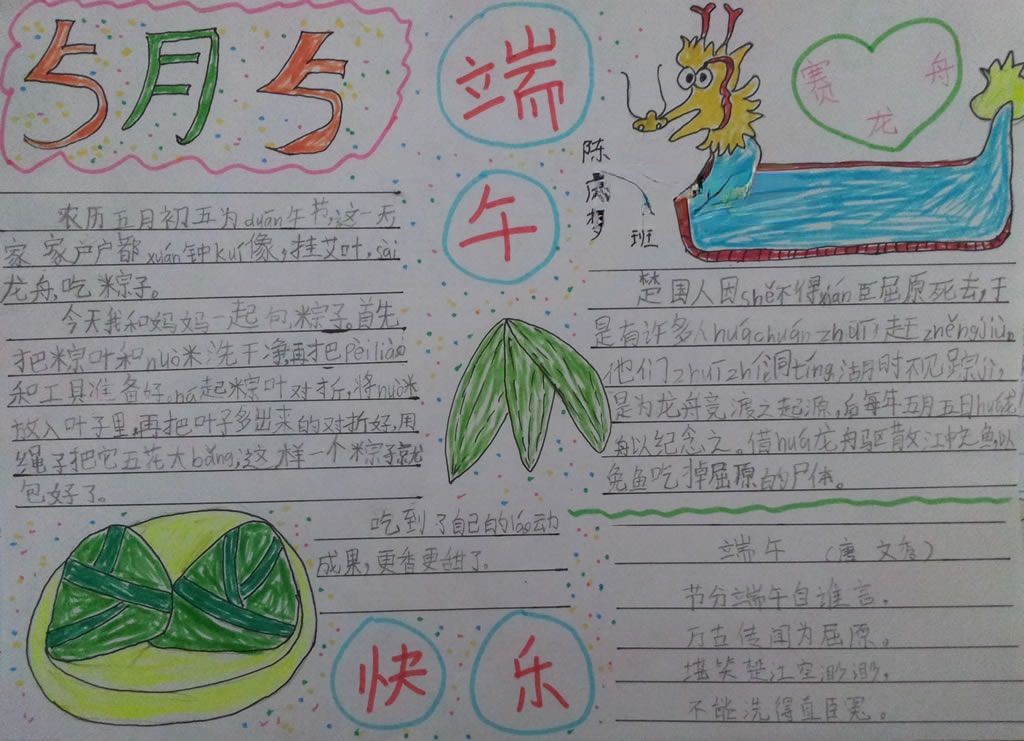 5月5
端
午
赛
龙
舟
陈
梦
班
农历五月初五为duān午节,这一天
家家户户都xuán钟kuí像,挂艾叶,sài
龙舟,吃粽子。
今天我和妈妈一起包粽子。首先
把粽叶和nuò米洗干净,再把pèiliào
和工具准备好,ná起粽叶对折,将nuò米
放入叶子里,再把叶子多出来的对折好,用
绳子把它五花大bǎng,这样一个粽子就
包好了。
吃到了自己的láo动
成果,更香更甜了。
楚国人因shě不得xián臣屈原死去,于
是有许多人huáchuánzhuī赶zhěngjiù,
他们zhuīzhì洞tíng湖时不见踪jì,
是为龙舟竞渡之起源,后每年五月五日huá龙
舟以纪念之。借huá龙舟驱散江中之鱼,以
免鱼吃掉屈原的尸体。
端午 (唐 文秀)
节分端午自谁言,
万古传闻为屈原。
堪笑楚江空渺渺,
不能洗得直臣冤。
快
乐